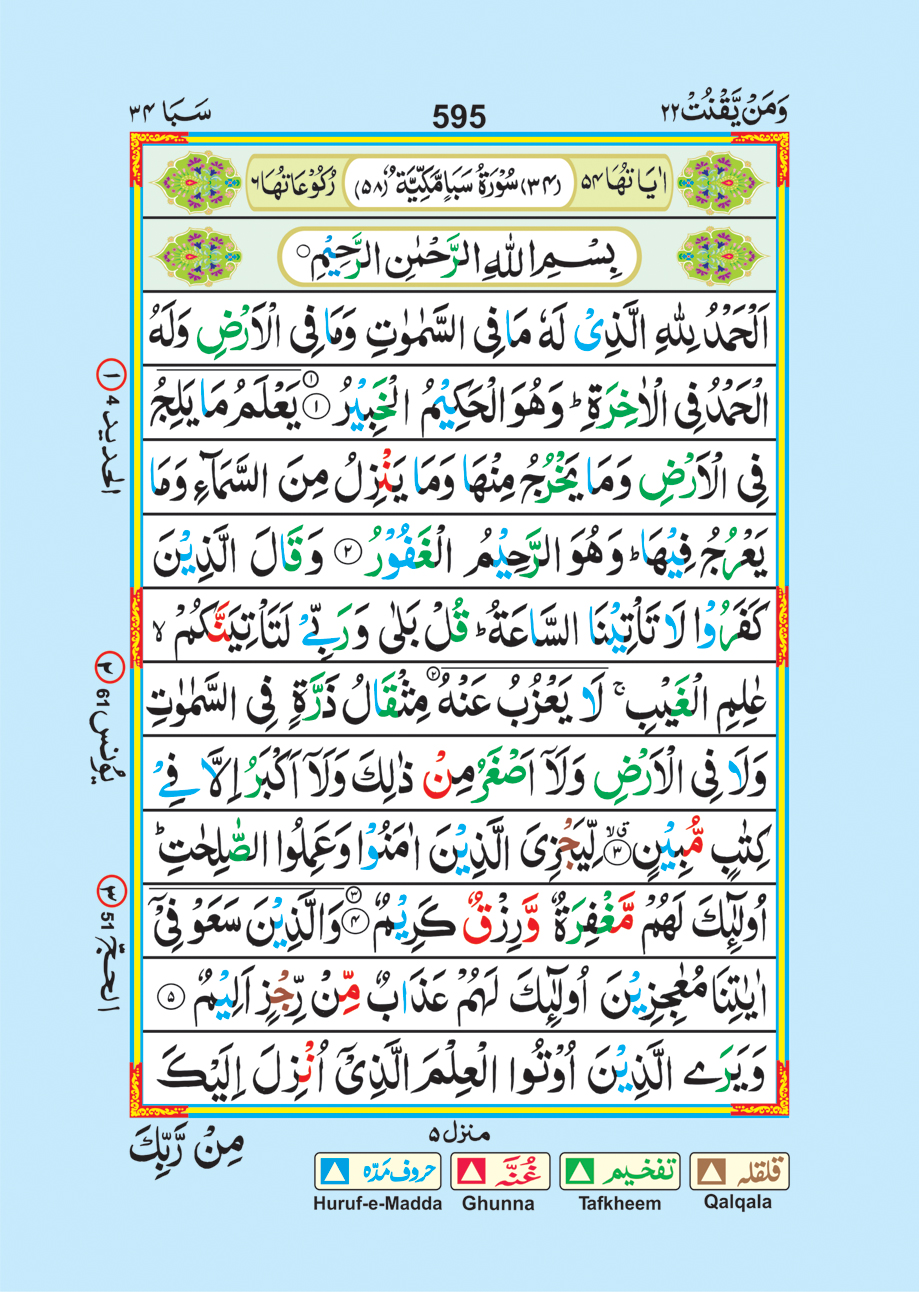 وَمَنۡ يَّقۡنُتۡ ۲۲
595
سَبَا ۳۴
اٰيَاتُهَا ۵۴
(۳۴) سُوۡرَةُ سَبَاٍ مَّكِّيَّةٌ (۵۸)
رُكُوۡعَاتُهَا ۶
بِسۡمِ اللّٰهِ الرَّحۡمٰنِ الرَّحِيۡمِ ۝
اَلۡحَمۡدُ لِلّٰهِ الَّذِىۡ لَهٗ مَا فِى السَّمٰوٰتِ وَمَا فِى الۡاَرۡضِ وَلَهُ
الۡحَمۡدُ فِى الۡاٰخِرَةِ ؕ وَهُوَ الۡحَكِيۡمُ الۡخَبِيۡرُ ۝۱ ۱ يَعۡلَمُ مَا يَلِجُ
فِى الۡاَرۡضِ وَمَا يَخۡرُجُ مِنۡهَا وَمَا يَنۡزِلُ مِنَ السَّمَآءِ وَمَا
يَعۡرُجُ فِيۡهَا ؕ وَهُوَ الرَّحِيۡمُ الۡغَفُوۡرُ ۝۲ وَقَالَ الَّذِيۡنَ
كَفَرُوۡا لَا تَاۡتِيۡنَا السَّاعَةُ ؕ قُلۡ بَلٰى وَرَبِّىۡ لَتَاۡتِيَنَّكُمۡ ۙ
عٰلِمِ الۡغَيۡبِ ۚ لَا يَعۡزُبُ عَنۡهُ ۲ مِثۡقَالُ ذَرَّةٍ فِى السَّمٰوٰتِ
وَلَا فِى الۡاَرۡضِ وَلَاۤ اَصۡغَرُ مِنۡ ذٰلِكَ وَلَاۤ اَكۡبَرُ اِلَّا فِىۡ
كِتٰبٍ مُّبِيۡنٍ ۝۳ ق لا لِّيَجۡزِىَ الَّذِيۡنَ اٰمَنُوۡا وَعَمِلُوا الصّٰلِحٰتِ ؕ
اُولٰٓئِكَ لَهُمۡ مَّغۡفِرَةٌ وَّرِزۡقٌ كَرِيۡمٌ ۝۴ ۳ وَالَّذِيۡنَ سَعَوۡ فِىۡۤ
اٰيٰتِنَا مُعٰجِزِيۡنَ اُولٰٓئِكَ لَهُمۡ عَذَابٌ مِّنۡ رِّجۡزٍ اَلِيۡمٌ ۝۵
وَيَرَى الَّذِيۡنَ اُوۡتُوا الۡعِلۡمَ الَّذِىۡۤ اُنۡزِلَ اِلَيۡكَ
۱ الحديد 4
۲ يُونس 61
۳ الحجّ 51
منزل ۵
مِنۡ رَّبِّكَ
قلقلہ
تفخیم
غُنَّہ
حروف مَدّہ
Huruf-e-Madda
Ghunna
Tafkheem
Qalqala